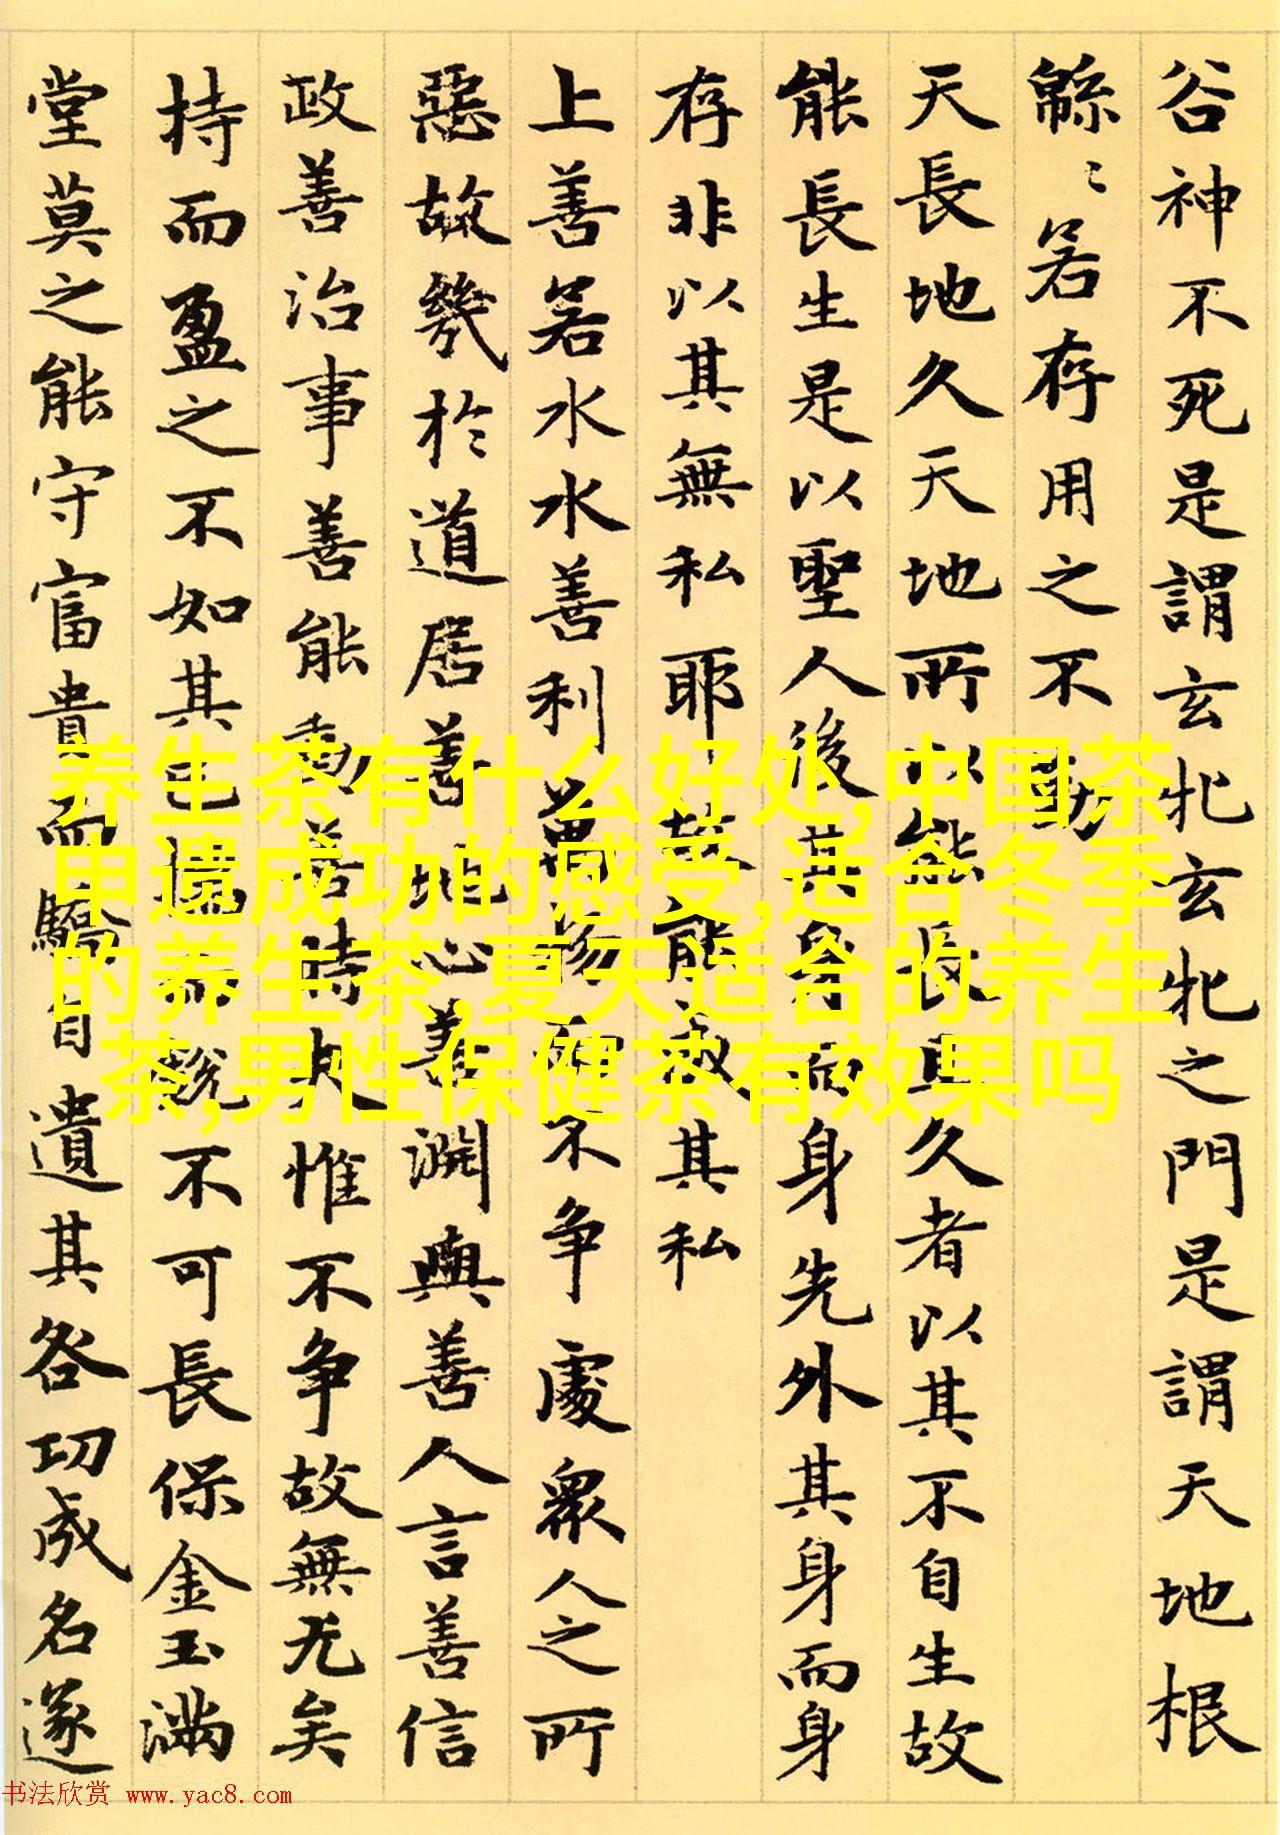 谷神不死是謂玄牝玄牝之門是謂天地根
緜〻若存用之不勤
天長地久天地所以能長且久者以其不自生故
能長生是以聖人後其身而身先外其身而身
存非以其無私耶故能成其私
上善若水水善利萬物而不争處衆人之所
惡故幾於道居善地心善淵與善人言善信
政善治事善能動善時夫惟不争故無尤矣
持而盈之不如其已揣而銳不可長保金玉滿
堂莫之能守富貴而驕自遺其咎功成名遂
养生茶有什么好处,中国茶
申遗成功的感受,适合冬季
的养生茶,夏天适合的养生
茶,男性保健茶有效果吗
书法欣赏 www.yac8.com